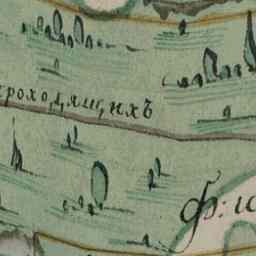 проходящихъ